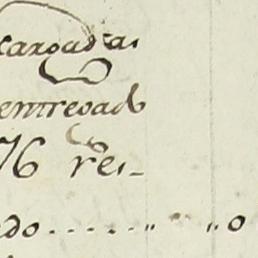 cargadas
entregado
76 res.
ado . . . . . . " " 0